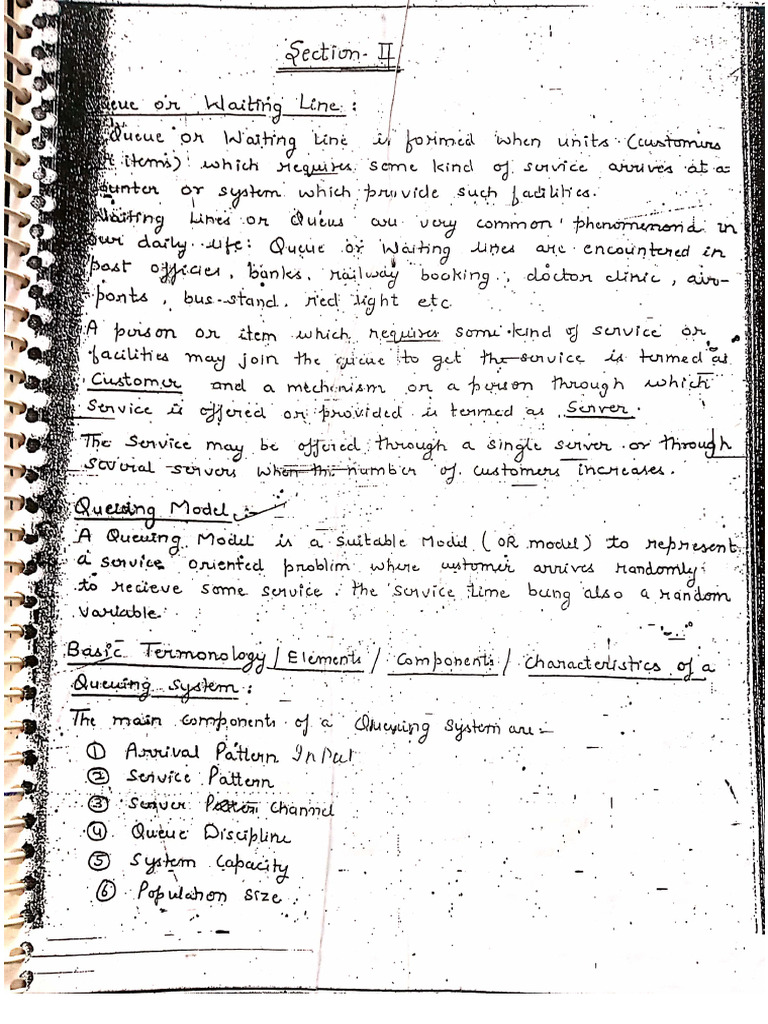 Section-II
Queue or Waiting Line :
Queue or Waiting Line is formed when units (customers
items) which requires some kind of service arrives at a
counter or system which provide such facilities.
Waiting Lines or Queus are very common phenomenond in
our daily life: Queue or Waiting lines are encountered in
post officies, banks, railway booking, doctor clinic, air-
ponts, bus-stand, red light etc.
A person or item which requires some kind of service or
facilities may join the queue to get the service is termed as
Customer and a mechenism or a person through which
Service is offered or provided is termed as Server.
The Service may be offered through a single server or through
several servers when the number of customers increases.
Queuing Model :-
A Queuing Model is a suitable Model (OR model) to represent
a service oriented problem where customer arrives randomly
to recieve some service. the service time being also a random
variable.
Basic Termonology / Elements / Components / Characteristics of a
Queuing System :
The main components of a Queuing System are :-
① Arrival Pattern InPut
② Service Pattern
③ Server channel
④ Queue Discipline
⑤ System Capacity
⑥ Population size.